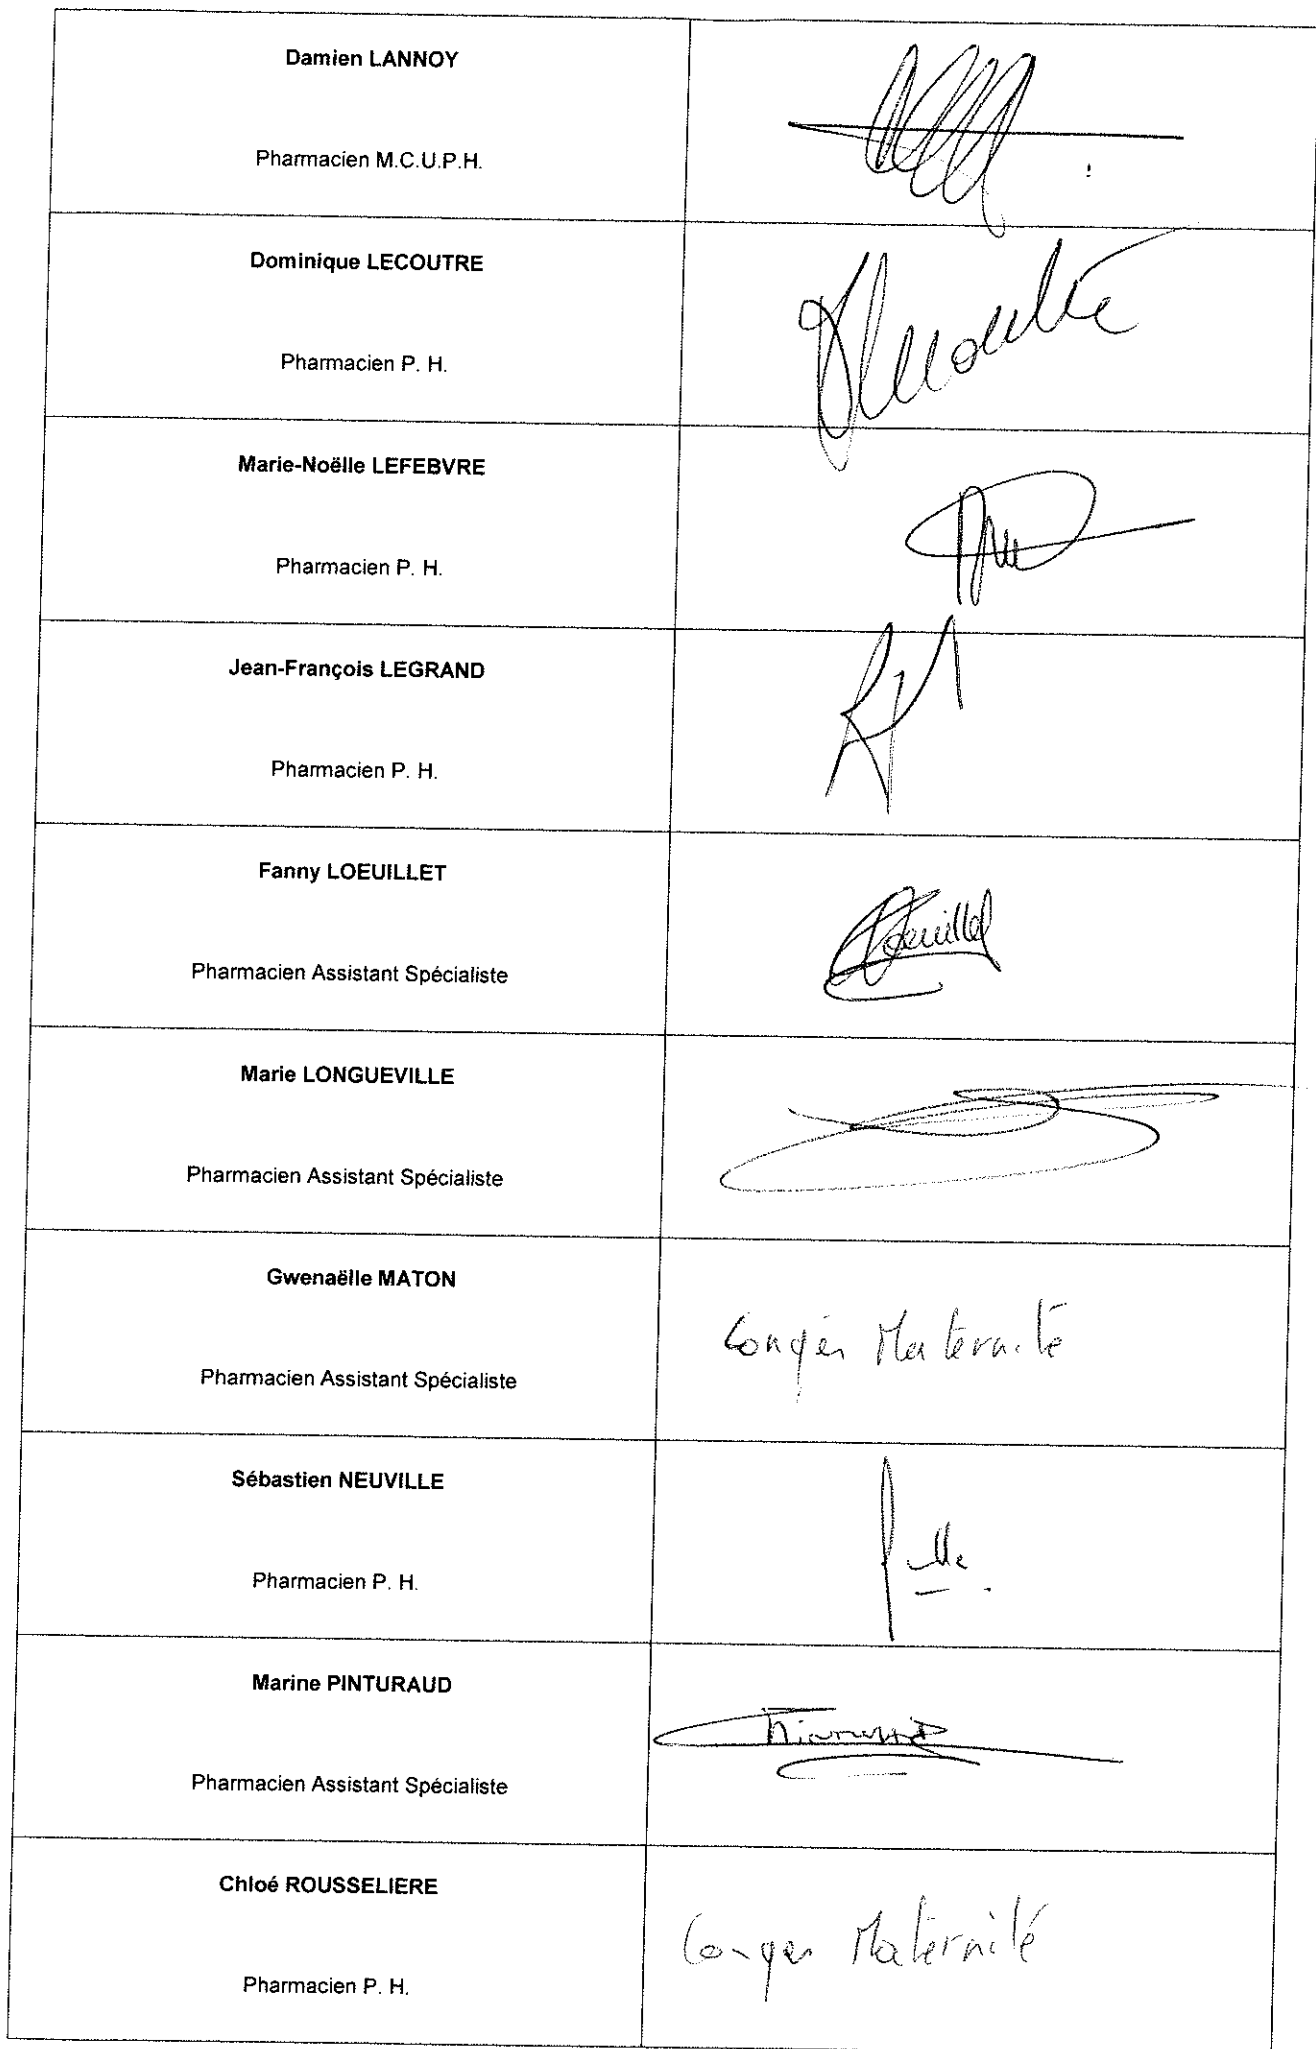 Damien LANNOY
Pharmacien M.C.U.P.H.
Dominique LECOUTRE
Pharmacien P. H.
Marie-Noëlle LEFEBVRE
Pharmacien P. H.
Jean-François LEGRAND
Pharmacien P. H.
Fanny LOEUILLET
Pharmacien Assistant Spécialiste
Loeuillet
Marie LONGUEVILLE
Pharmacien Assistant Spécialiste
Gwenaëlle MATON
Pharmacien Assistant Spécialiste
Congés Maternité
Sébastien NEUVILLE
Pharmacien P. H.
Marine PINTURAUD
Pharmacien Assistant Spécialiste
Chloé ROUSSELIERE
Pharmacien P. H.
Congés Maternité